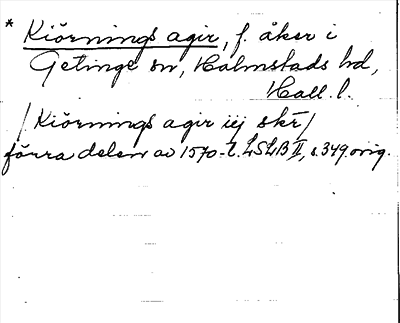 * Kiörnings agir, f. åker i
Getinge sn, Halmstads hd,
Hall. l.
/Kiörnings agir iij skr/
förra delen av 1570-t. LSLB II, s. 349 orig.